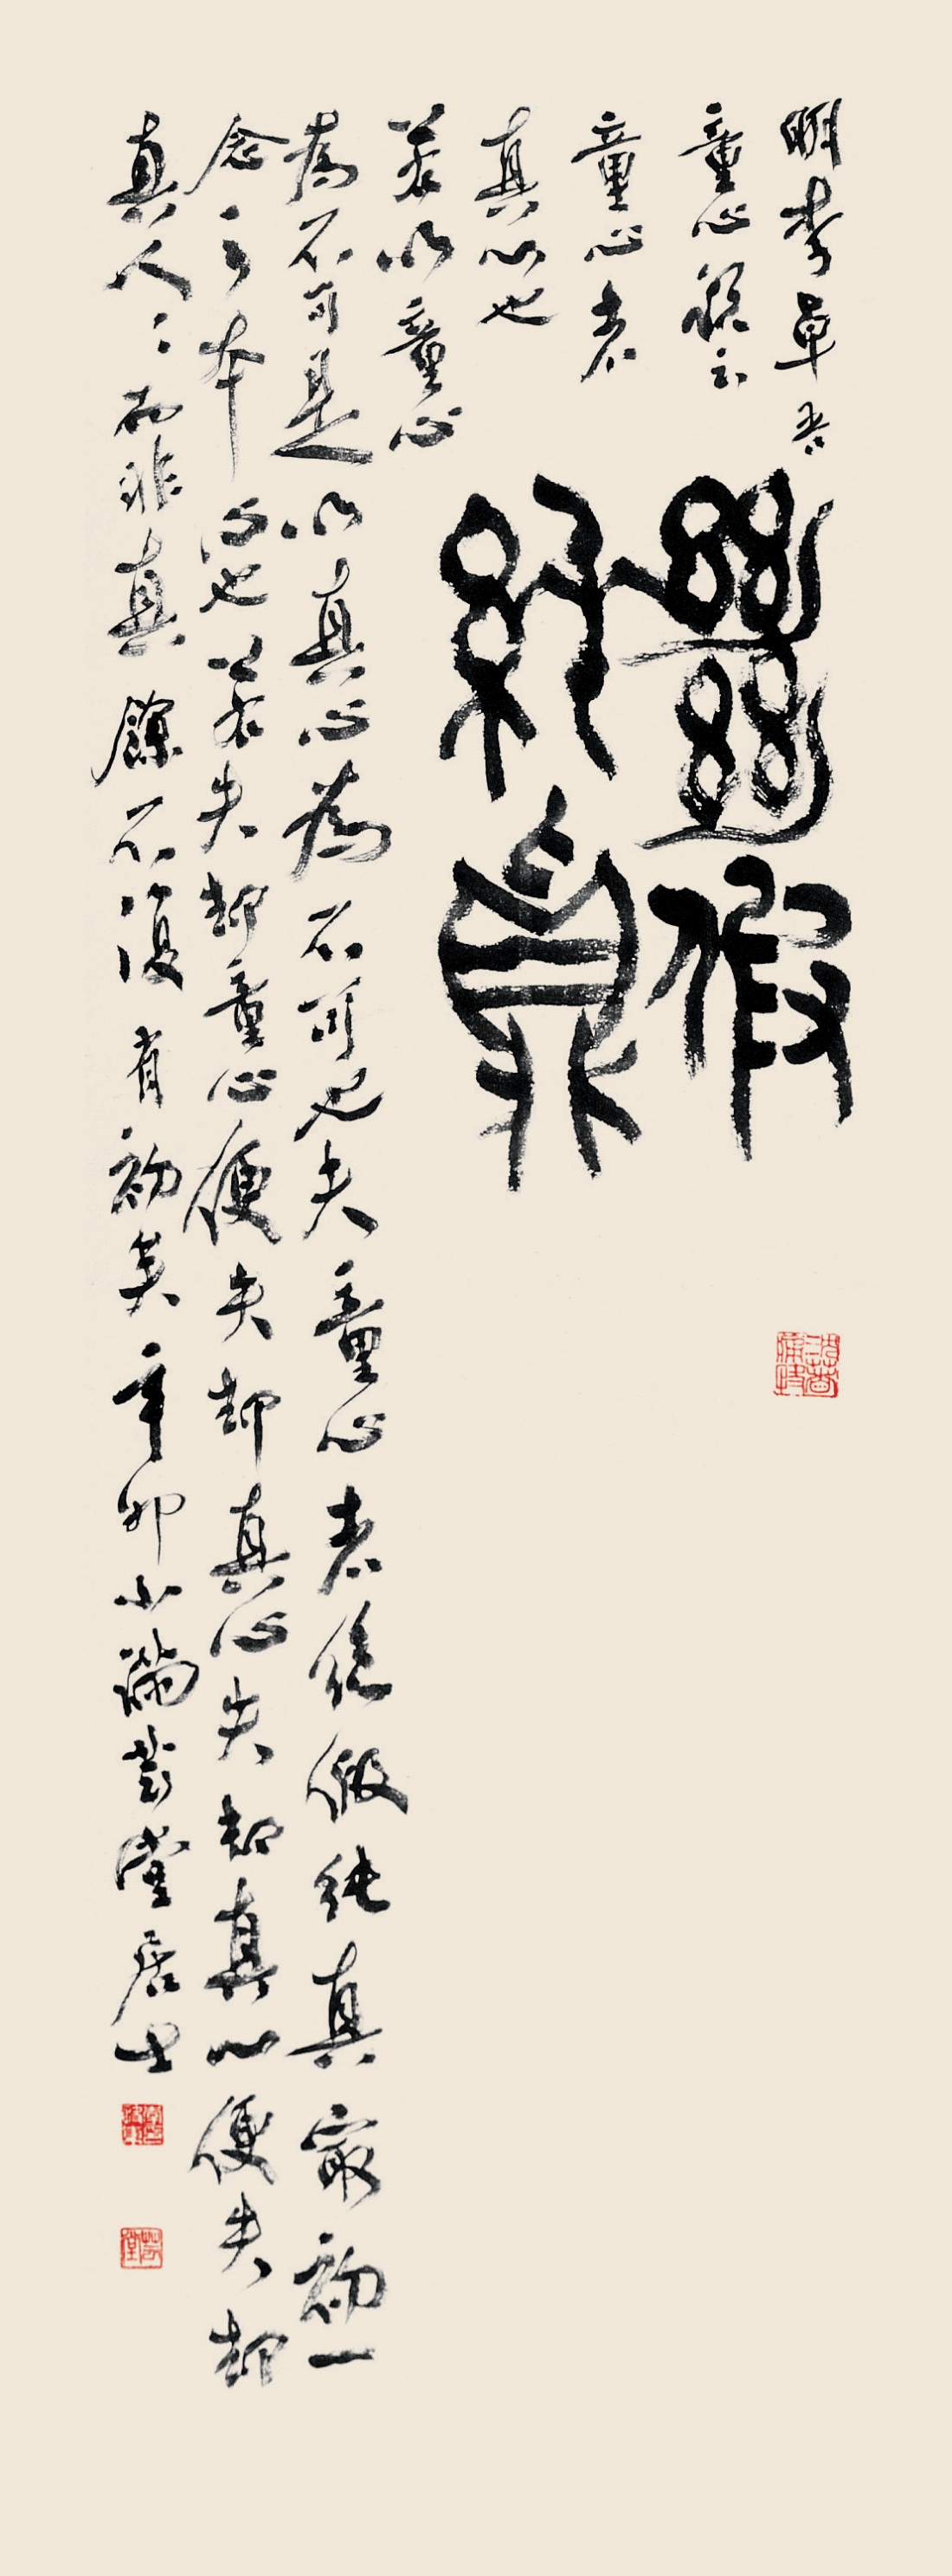 絕假
純真
明李卓吾
童心說云
童心者
真心也
若以童心
為不可是以真心為不可也夫童心者絕假純真最初一
念之本心也若失却童心便失却真心失却真心便失却
真人〻而非真餘不復有初矣辛卯小滿芸堂居士